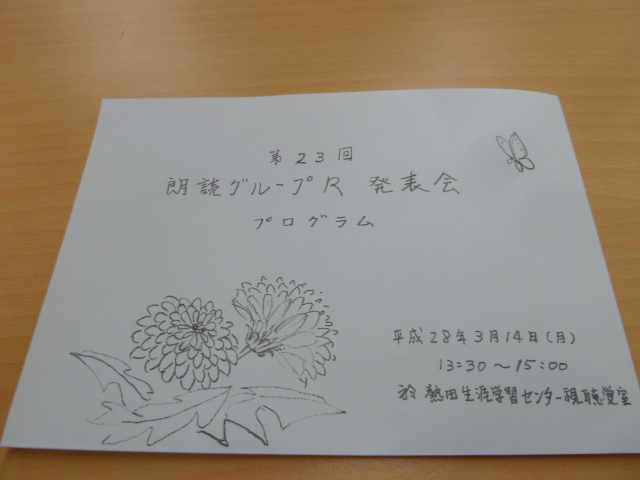 第23回
朗読グループR 発表会
プログラム
平成28年3月14日(月)
13:30～15:00
於 熱田生涯学習センター視聴覚室